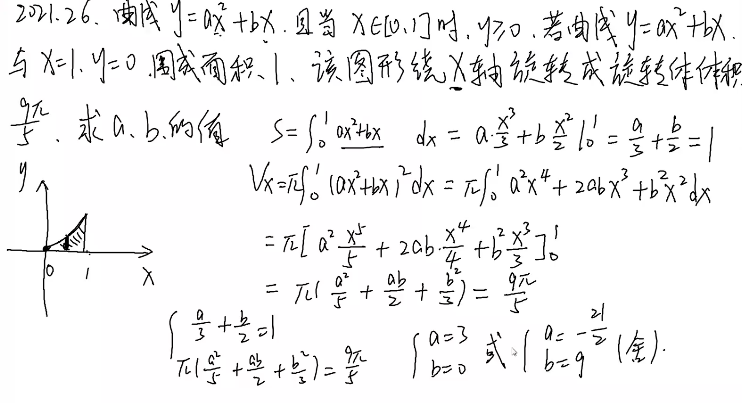 2021.26. 曲线 y=ax²+bx. 且当 x∈[0,1]时, y≥0. 若曲线 y=ax²+bx.
与 x=1. y=0 围成面积1. 该图形绕X轴旋转成旋转体体积
9π/5. 求a.b.的值 S=∫₀¹ ax²+bx dx = a·x³/3 + b x²/2 |₀¹ = a/3 + b/2 = 1
Vx=π∫₀¹ (ax²+bx)² dx = π∫₀¹ a²x⁴ + 2abx³ + b²x² dx
= π[ a² x⁵/5 + 2ab·x⁴/4 + b² x³/3 ]₀¹
= π( a²/5 + ab/2 + b²/3 ) = 9π/5
y
0 1 x
{ a/3 + b/2 = 1
π( a²/5 + ab/2 + b²/3 ) = 9π/5 { a=3 b=0 或 { a=-21/2 b=9 (舍).